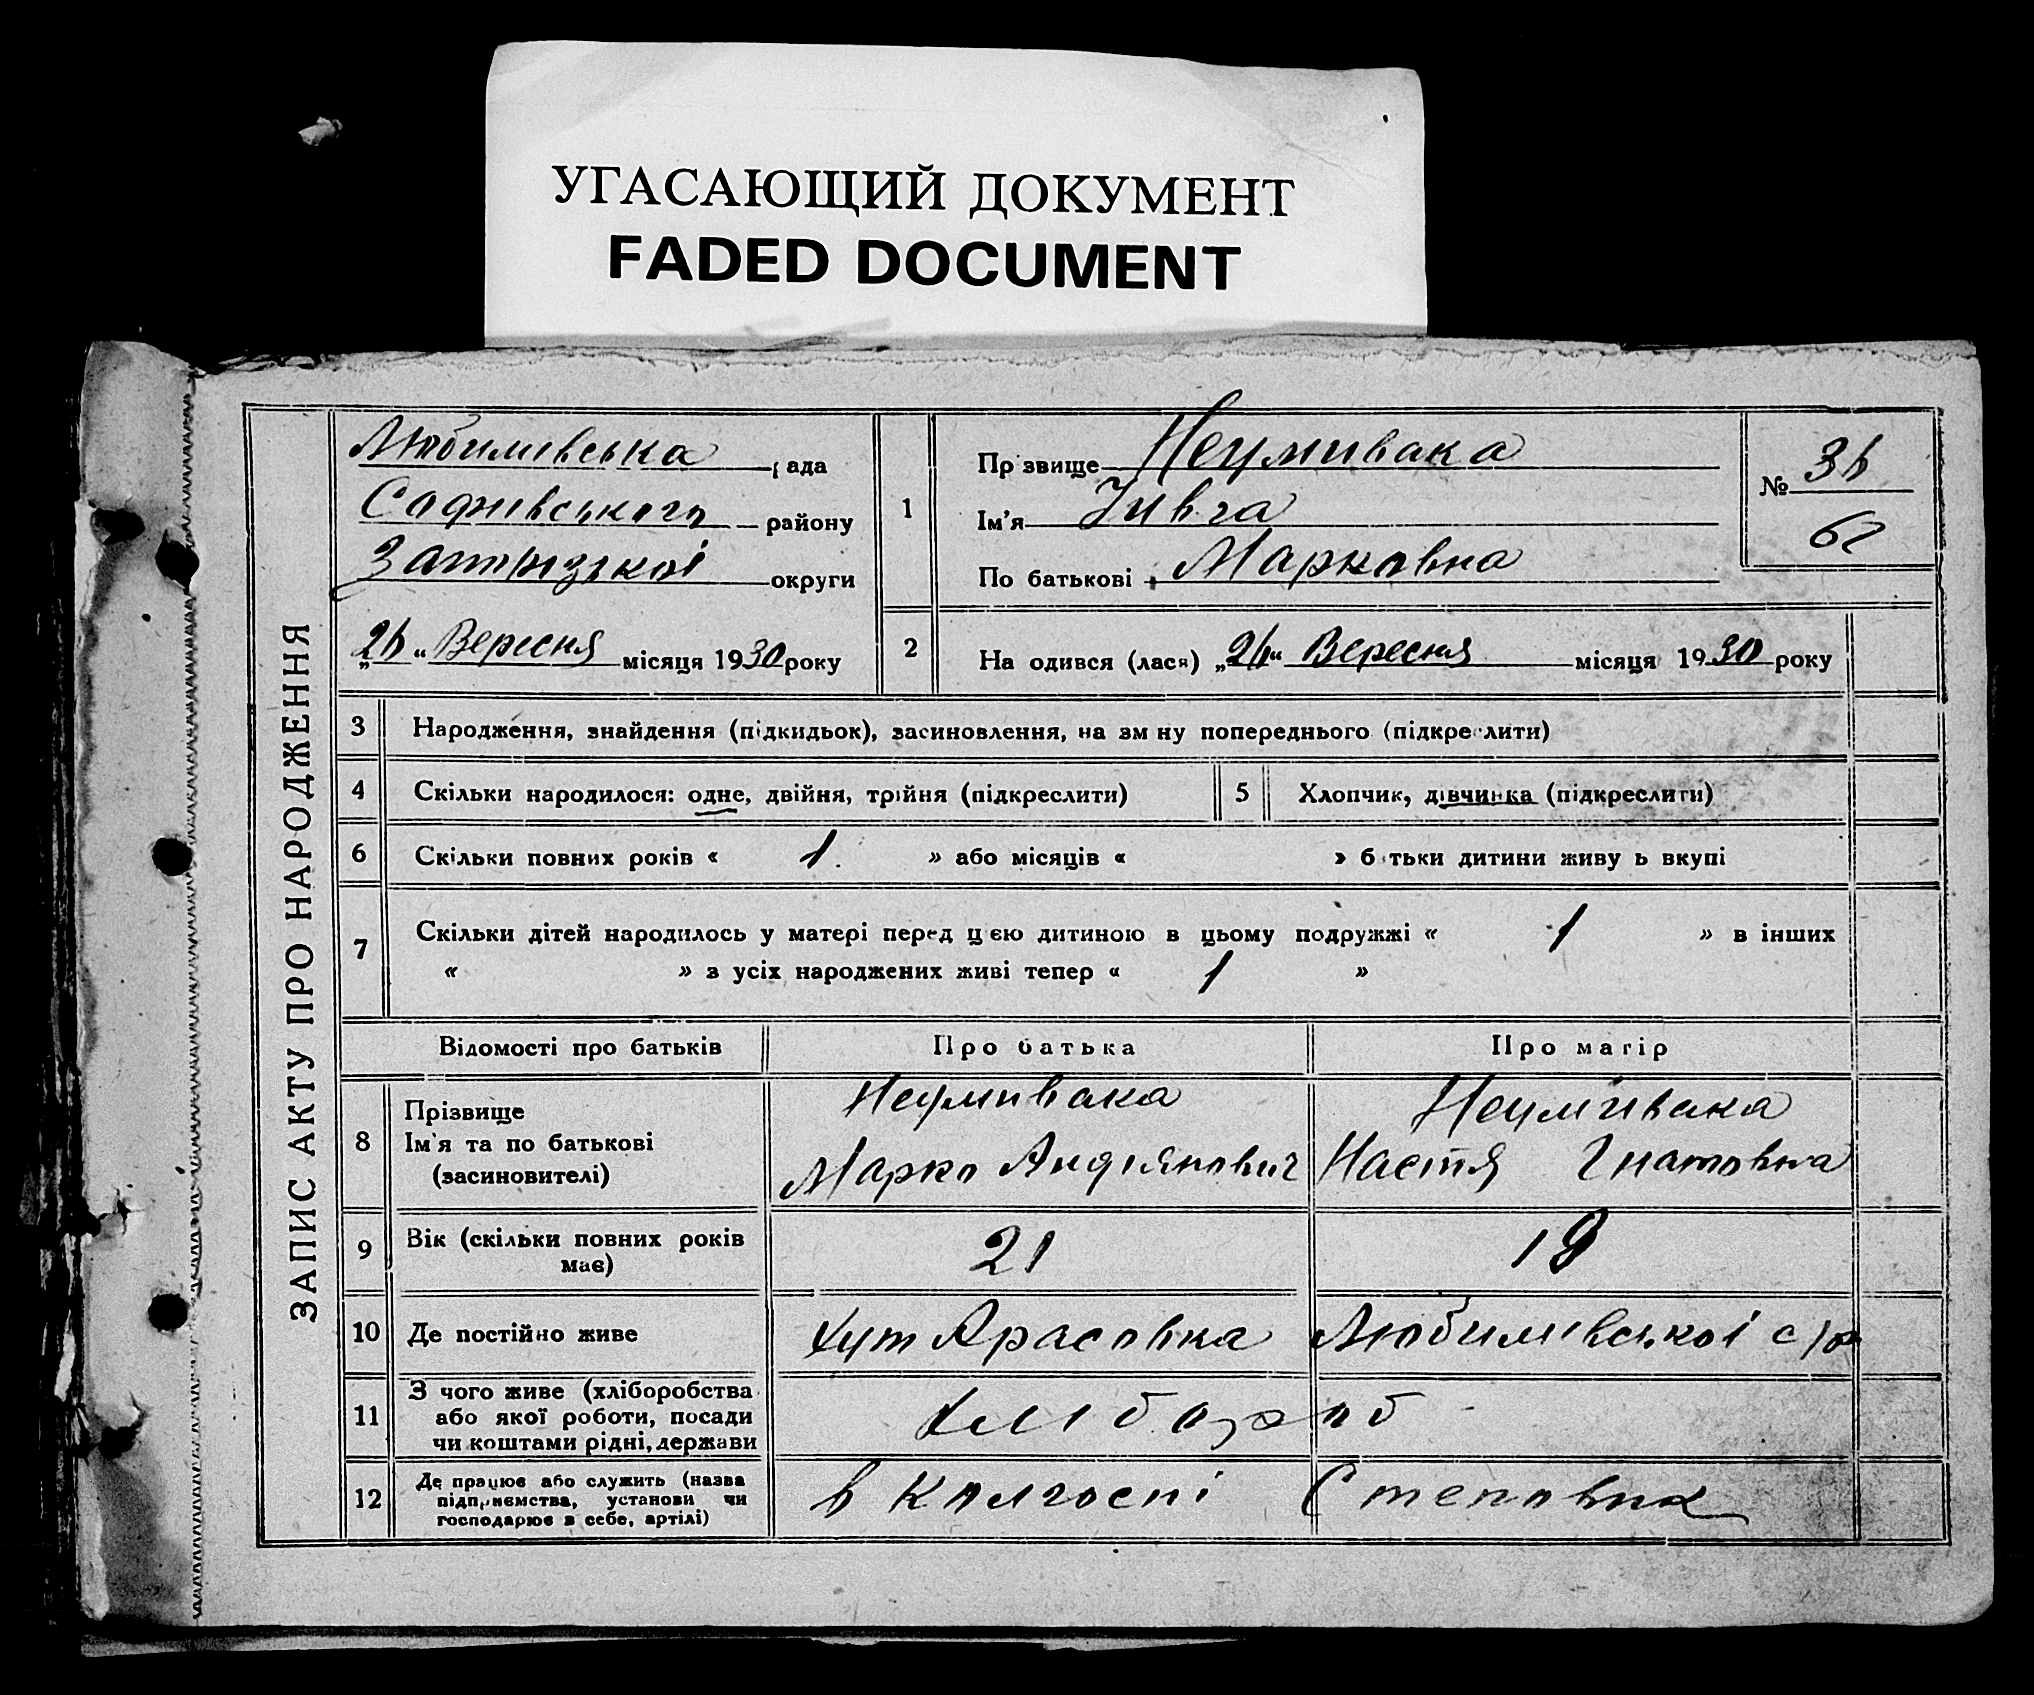 УГАСАЮЩИЙ ДОКУМЕНТ
FADED DOCUMENT
ЗАПИС АКТУ ПРО НАРОДЖЕННЯ
Любимівська рада
Софіївського району
округи
„26“ Вересня місяця 1930 року
1
Пр звище Неумивака
Ім’я Зивга
По батькові Марковна
№ 36
62
2
На одився (лася) „26“ Вересня місяця 1930 року
3 Народження, знайдення (підкидьок), засиновлення, на зм ну попереднього (підкреслити)
4 Скільки народилося: одне, двійня, трійня (підкреслити)
5 Хлопчик, дівчинка (підкреслити)
6 Скільки повних років « 1 » або місяців « » б тьки дитини живу ь вкупі
7 Скільки дітей народилось у матері перед цією дитиною в цьому подружжі « 1 » в інших
« » з усіх народжених живі тепер « 1 »
Відомості про батьків Про батька Про матір
8 Прізвище
Ім’я та по батькові
(засиновителі)
Неумивака
Марко Андріянович
Неумивака
Настя Гнатовна
9 Вік (скільки повних років
має)
21 19
10 Де постійно живе хут Арасовка Любимівської с/р
11 З чого живе (хліборобства
або якої роботи, посади
чи коштами рідні, держави
Хлібороб
12 Де працює або служить (назва
підприємства, установи чи
господарює в себе, артілі)
в колгоспі Степовик